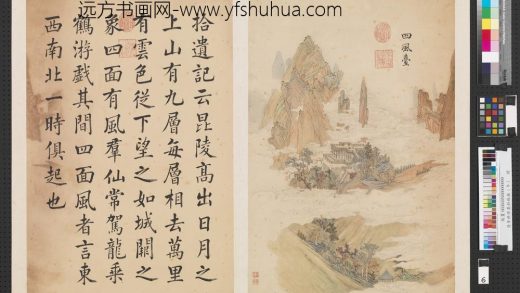 远方书画网-www.yfshuhua.com
拾遺記云昆陵高出日月之
上山有九層每層相去萬里
有雲色從下望之如城闕之
象四面有風羣仙常駕龍乘
鶴游戲其間四面風者言東
西南北一時俱起也
四風臺
6